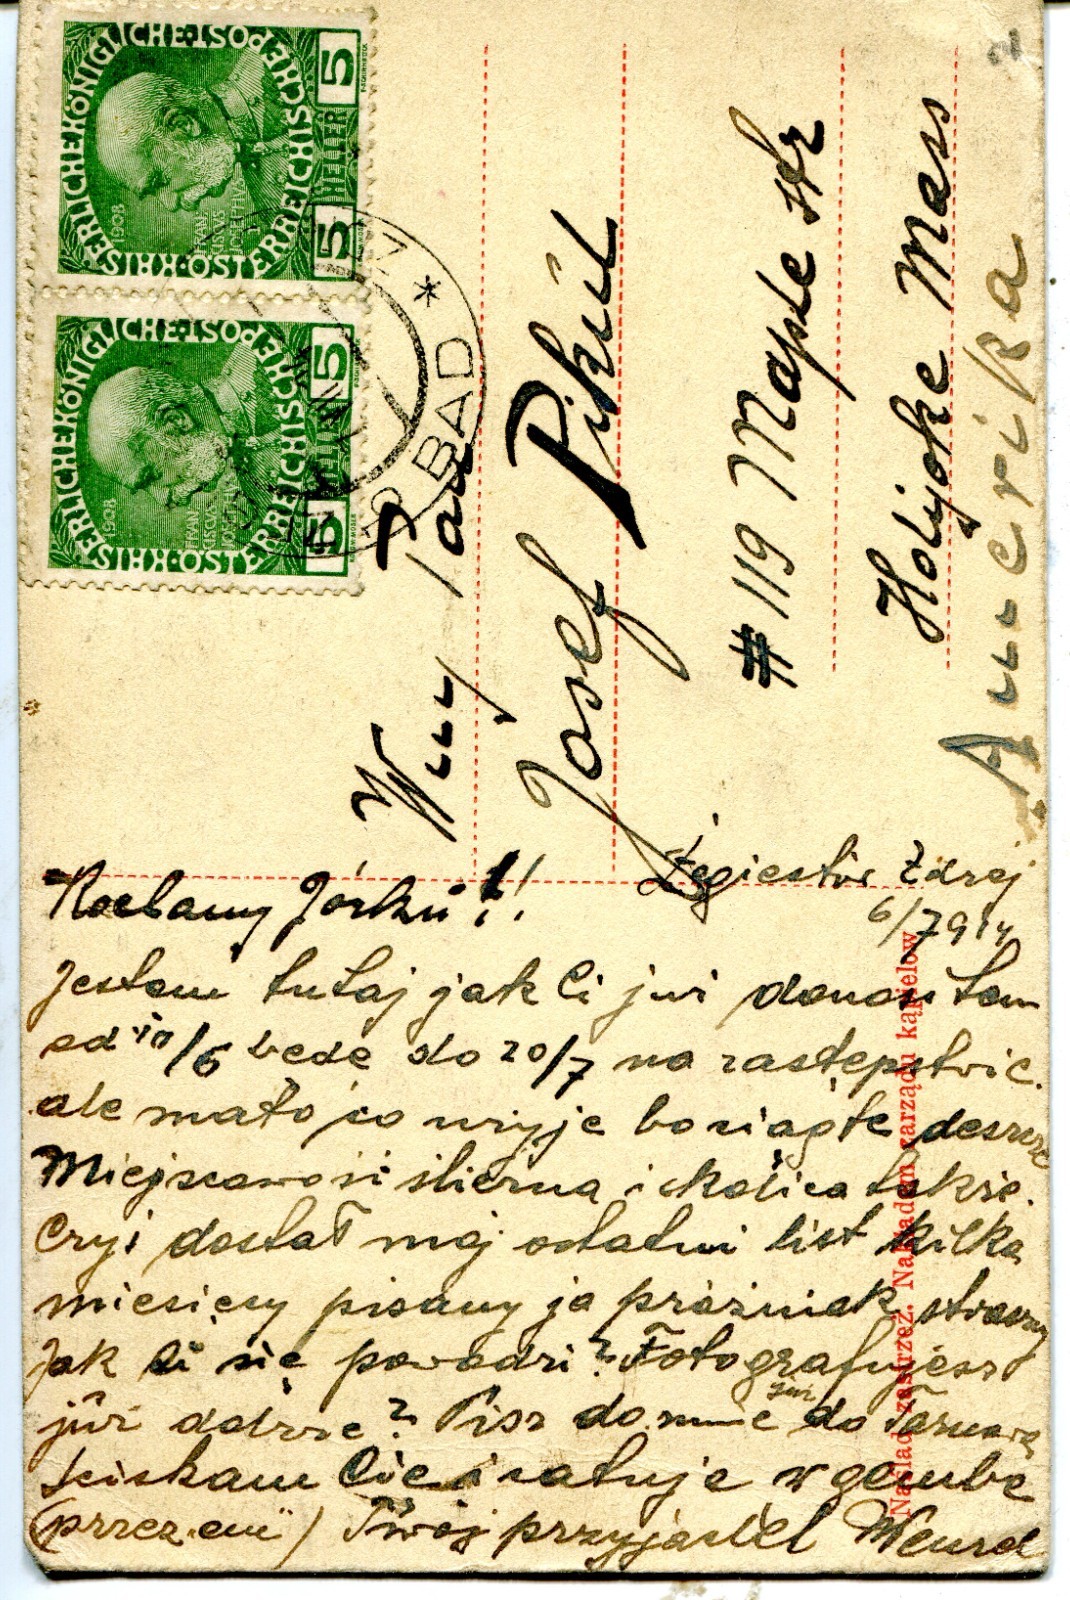 KAISERLICHE KÖNIGLICHE ÖSTERREICHISCHE POST
5 HELLER 5
1908
FRAN
CISCVS
IOSEPHVS
I
KAISERLICHE KÖNIGLICHE ÖSTERREICHISCHE POST
5 HELLER 5
1908
FRAN
CISCVS
BAD *
Wny Pan
Josef Pikul
#119 Maple str
Holyoke Mass
Amerika
Żegiestów Zdrój
6/7 914
Kochany Józku!!
Jestem tutaj jak Ci juz donosiłem
od 10/6 bede do 20/7 na zastępstwie.
ale mało co uzyje bo ciągłe deszcze
Miejscowość śliczna i okolica także.
Czyś dostał moj ostatni list kilka
miesięcy pisany ja próżniak straszny
Jak Ci się powodzi? Fotografujesz
już dobrze? Pisz do mnie już do Tarnowa
Sciskam Cie i całuje w gembe
Twój przyjaciel
Nakład zastrzeż. Nakładem zarządu kąpielow